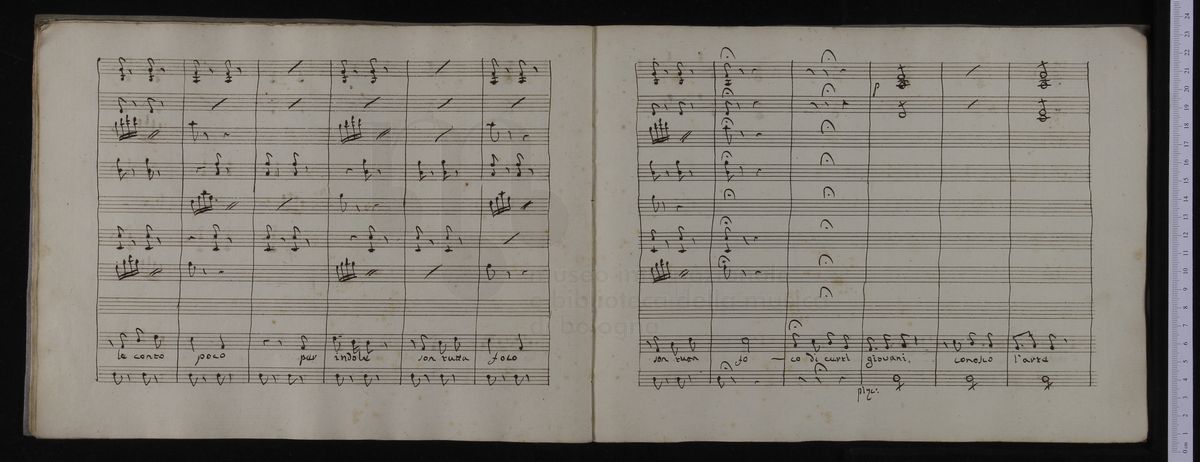 le conto poco per indole son tutta foco
p
son tutta fo co di certi giovani, conosco l'arte
pizz:
museo internazionale
e biblioteca della musica
di bologna
0 cm 1 2 3 4 5 6 7 8 9 10 11 12 13 14 15 16 17 18 19 20 21 22 23 24